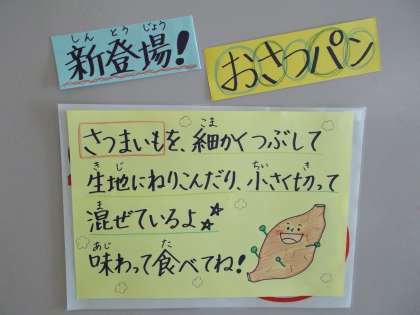 しんとうじょう
新登場!
おさつパン
さつまいもを、細かくつぶして
生地にねりこんだり、小さく切って
混ぜているよ☆
味わって食べてね!